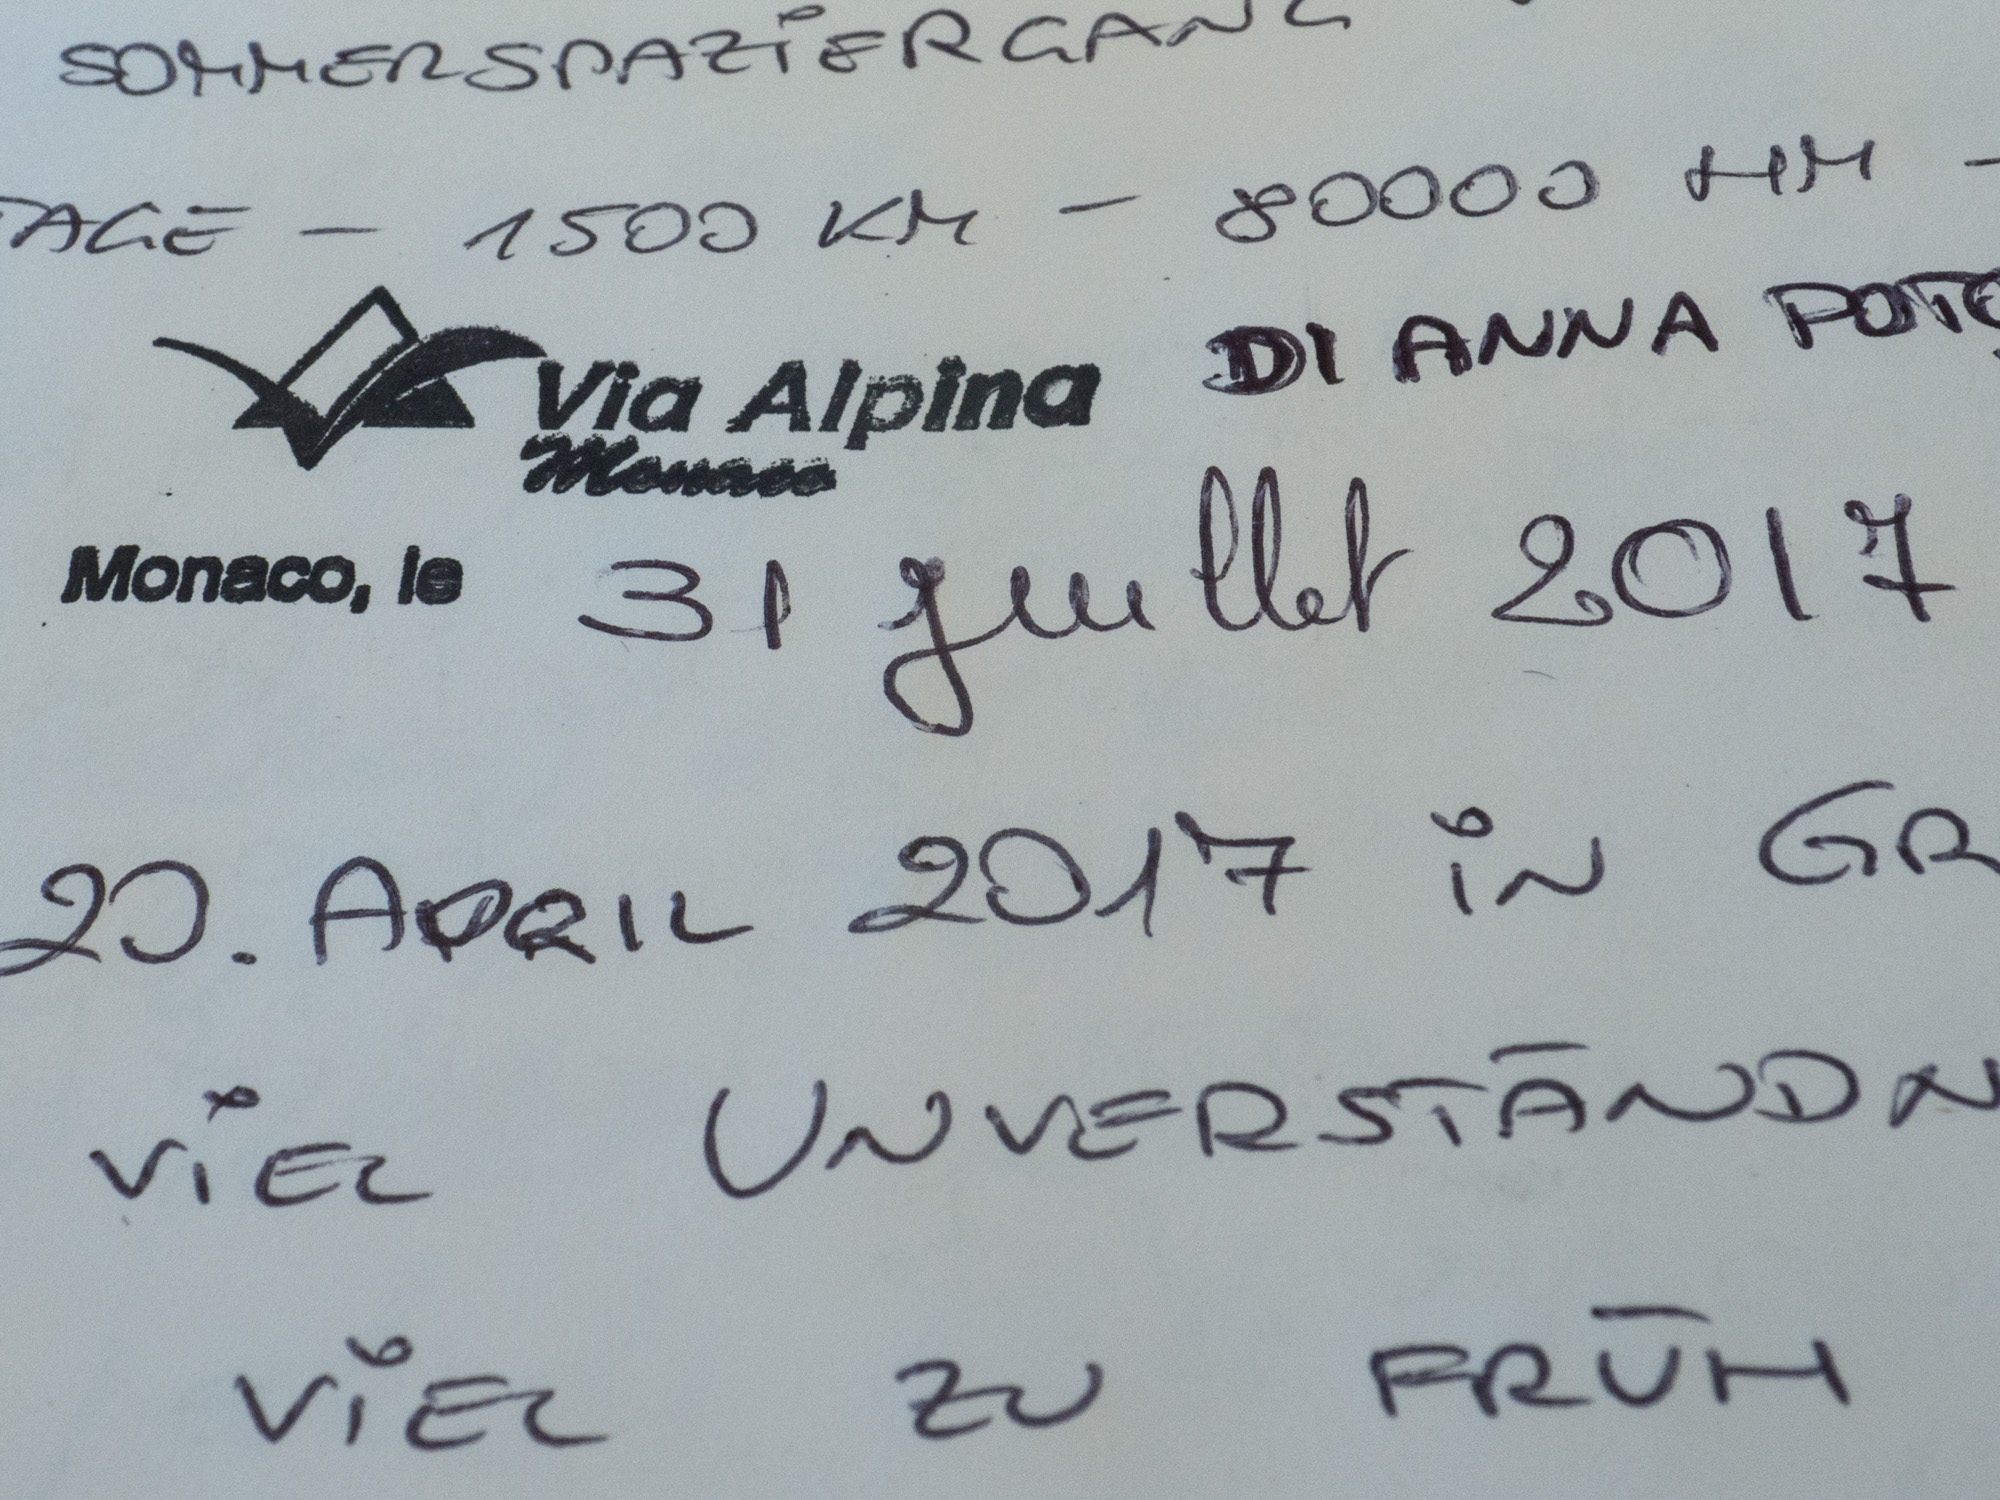 SOMMERSPAZIERGANG
TAGE – 1500 KM – 80000 HM –
Via Alpina
Monaco
DI ANNA
Monaco, le 31 juillet 2017
20. APRIL 2017 iN
ViEL
ViEL ZU FRÜH